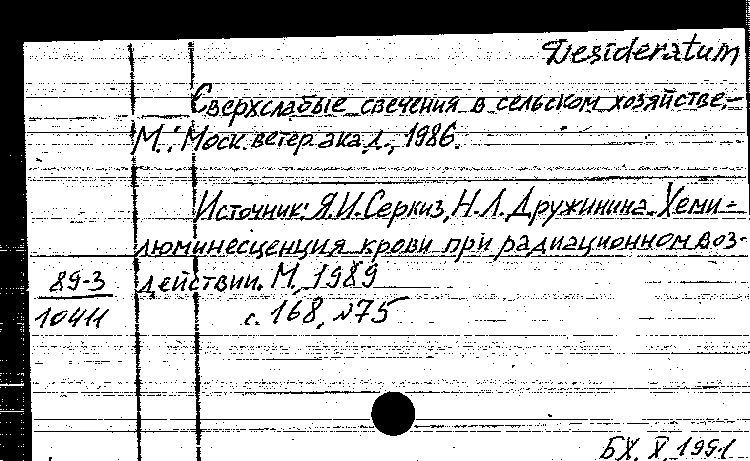 Desideratum
Сверхслабые свечения в сельском хозяйстве,–
М.: Моск. ветер. акад., 1986.
Источник: Я.И. Серкиз, Н.Л. Дружинина. Хеми-
люминесценция крови при радиационном воз-
действии. М., 1989
с. 168, №75
89-3
10411
БХ. X. 1991